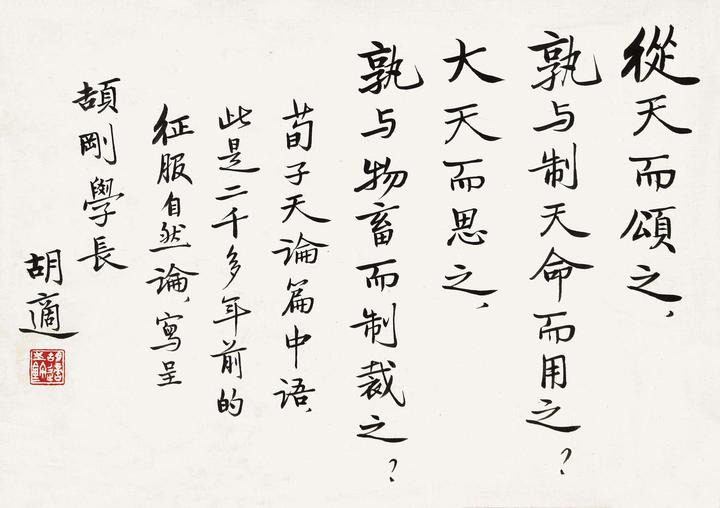 從天而頌之，
孰与制天命而用之？
大天而思之，
孰与物畜而制裁之？
荀子天論篇中语，
此是二千多年前的
征服自然論，寫呈
頡剛學長
胡適